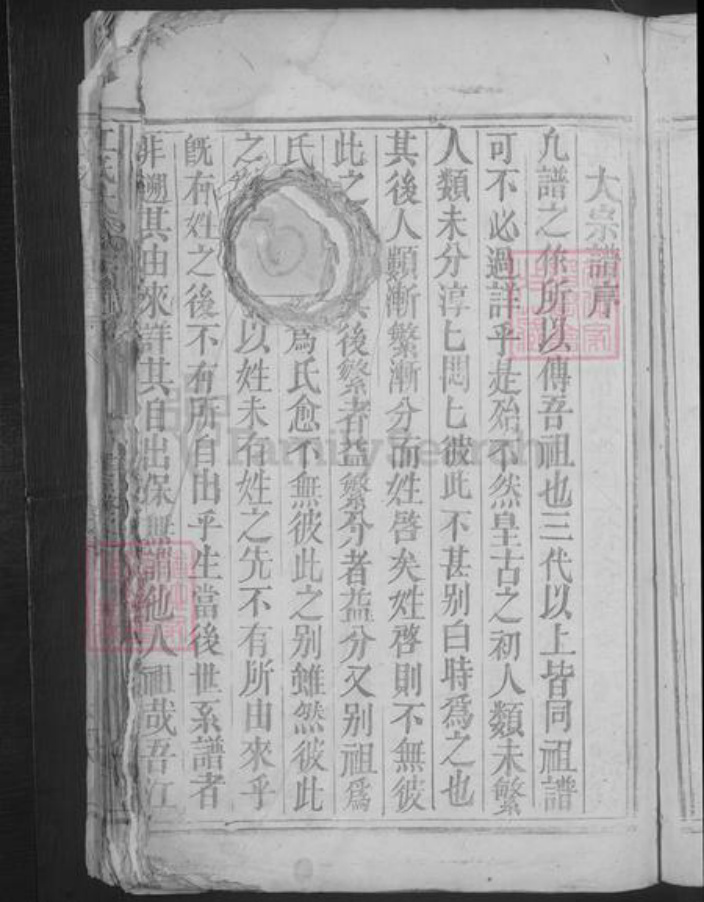 大宗譜序
凢譜之係所以傳吾祖也三代以上皆同祖譜
可不必過詳乎是殆不然皇古之初人類未繁
人類未分淳匕悶匕彼此不甚别白時爲之也
其後人類漸繁漸分而姓啓矣姓啓則不無彼
此之後繁者益繁分者益分又别祖爲
氏爲氏愈不無彼此之别雖然彼此
之以姓未有姓之先不有所由來乎
旣有姓之後不有所自出乎生當後世系譜者
非遡其由來詳其自出保無謂他人祖哉吾江
FamilySearch